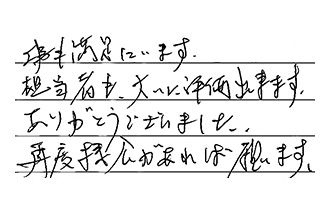 満足しています。
担当者も、大いに評価出来ます。
ありがとうございました。
再度機会があれば願います。